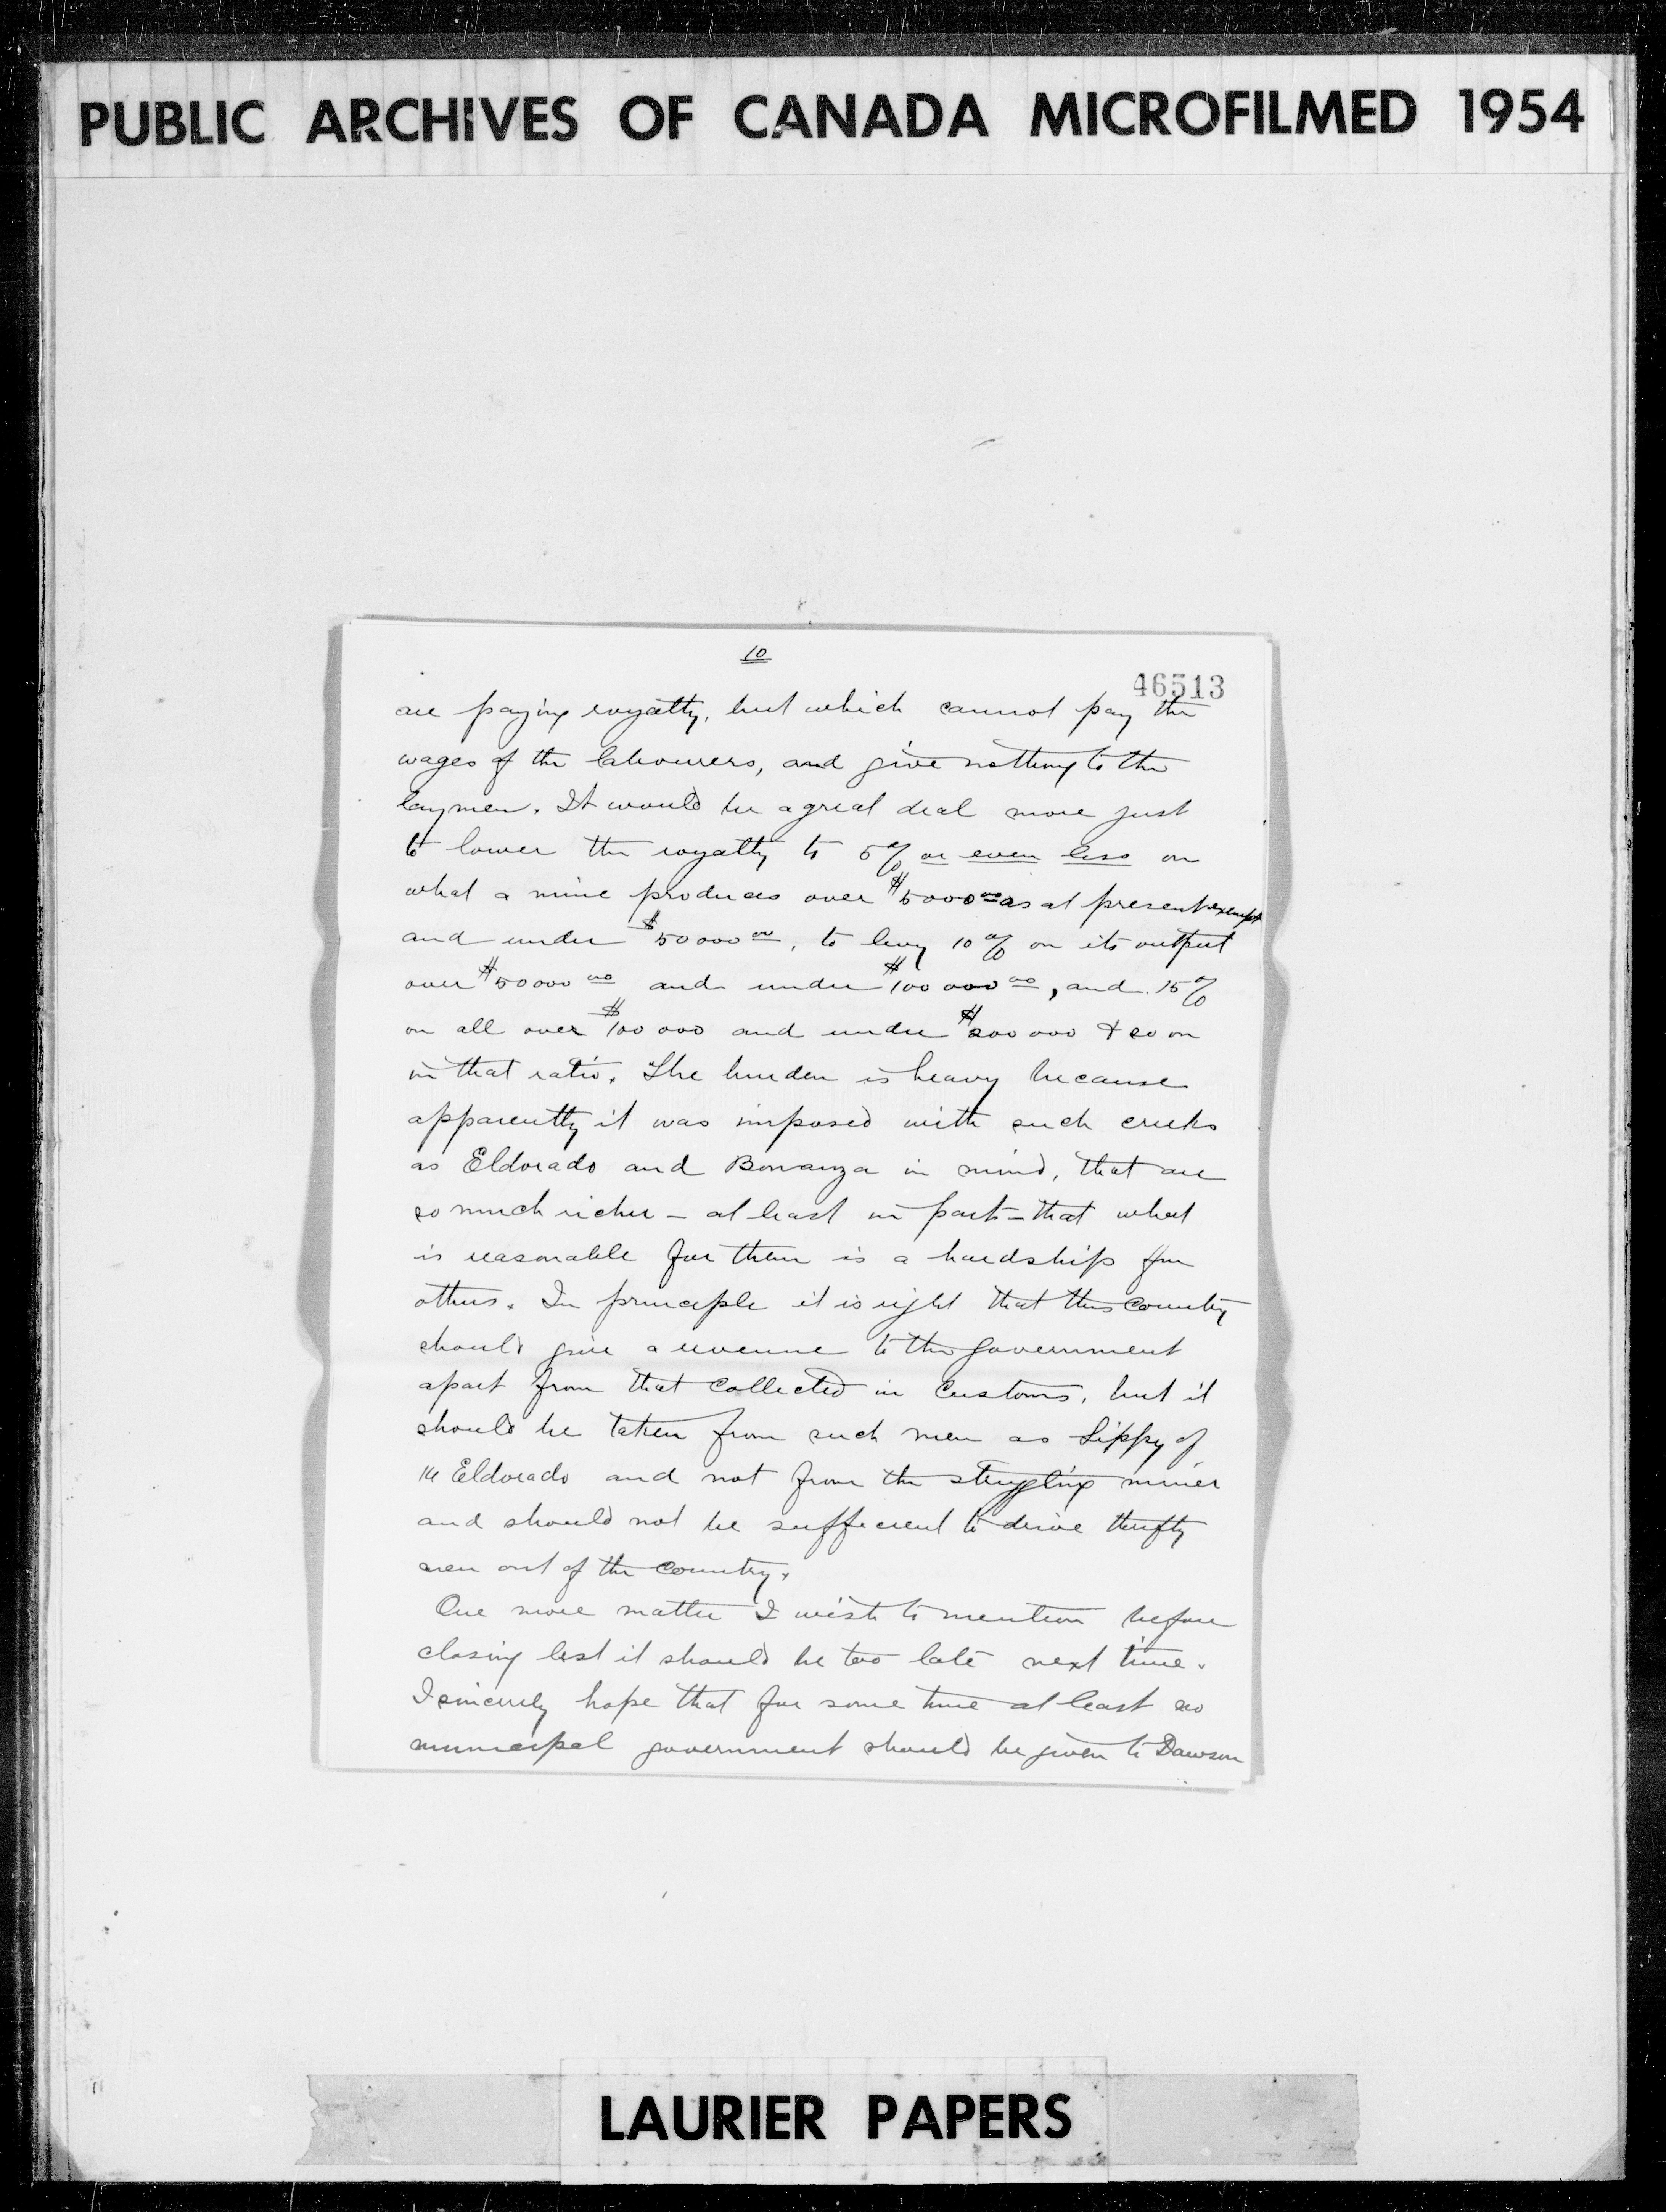 PUBLIC ARCHIVES OF CANADA MICROFILMED 1954
10
46513
are paying royalty, but which cannot pay the
wages of the labourers, and give nothing to the
laymen. It would be a great deal more just
to lower the royalty to 5% or even less on
what a mine produces over $5000.00 as at present exempt
and under $50000.00, to levy 10% on its output
over $50000.00 and under $100000.00, and 15%
on all over $100000 and under $200000 & so on
in that ratio. The burden is heavy because
apparently it was imposed with such creeks
as Eldorado and Bonanza in mind, that are
so much richer - at least in part - that what
is reasonable for them is a hardship for
others. In principle it is right that this country
should give a revenue to the government
apart from that collected in Customs, but it
should be taken from such men as Lippy of
16 Eldorado and not from the struggling miner
and should not be sufficient to drive thrifty
men out of the country.
One more matter I wish to mention before
closing lest it should be too late next time.
I sincerely hope that for some time at least no
municipal government should be given to Dawson
LAURIER PAPERS